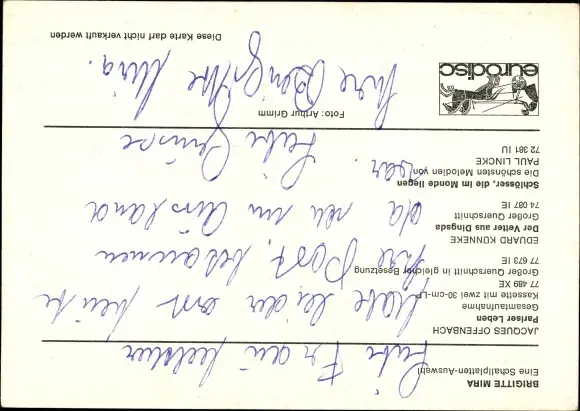 BRIGITTE MIRA
Eine Schallplatten-Auswahl
Liebe Frau
JACQUES OFFENBACH
Pariser Leben
Gesamtaufnahme
Kassette mit zwei 30-cm-Lp
77 489 XE
Großer Querschnitt in gleicher Besetzung
77 673 IE
habe leider erst heute
Ihre Post bekommen
EDUARD KÜNNEKE
Der Vetter aus Dingsda
Großer Querschnitt
74 087 IE
da ich im Ausland
Schlösser, die im Monde liegen
Die schönsten Melodien von
PAUL LINCKE
72 381 IU
war.
Liebe Grüsse
Foto: Arthur Grimm
Ihre Brigitte Mira.
eurodisc
Diese Karte darf nicht verkauft werden